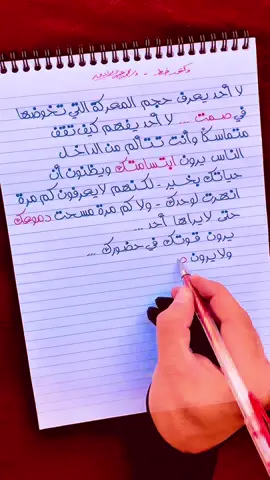 لا أحد يعرف حجم المعركة التي تخوضها
في صمت ... لا أحد يفهم كيف تقف
متماسكاً وأنت تتألم من الداخل
الناس يرون ابتسامتك ويظنون أن
حياتك بخير - لكنهم لا يعرفون كم مرة
انهرت لوحدك - ولا كم مرة مسحت دموعك
حتى لا يراها أحد ...
يرون قوتك في حضورك ...
ولا يرون